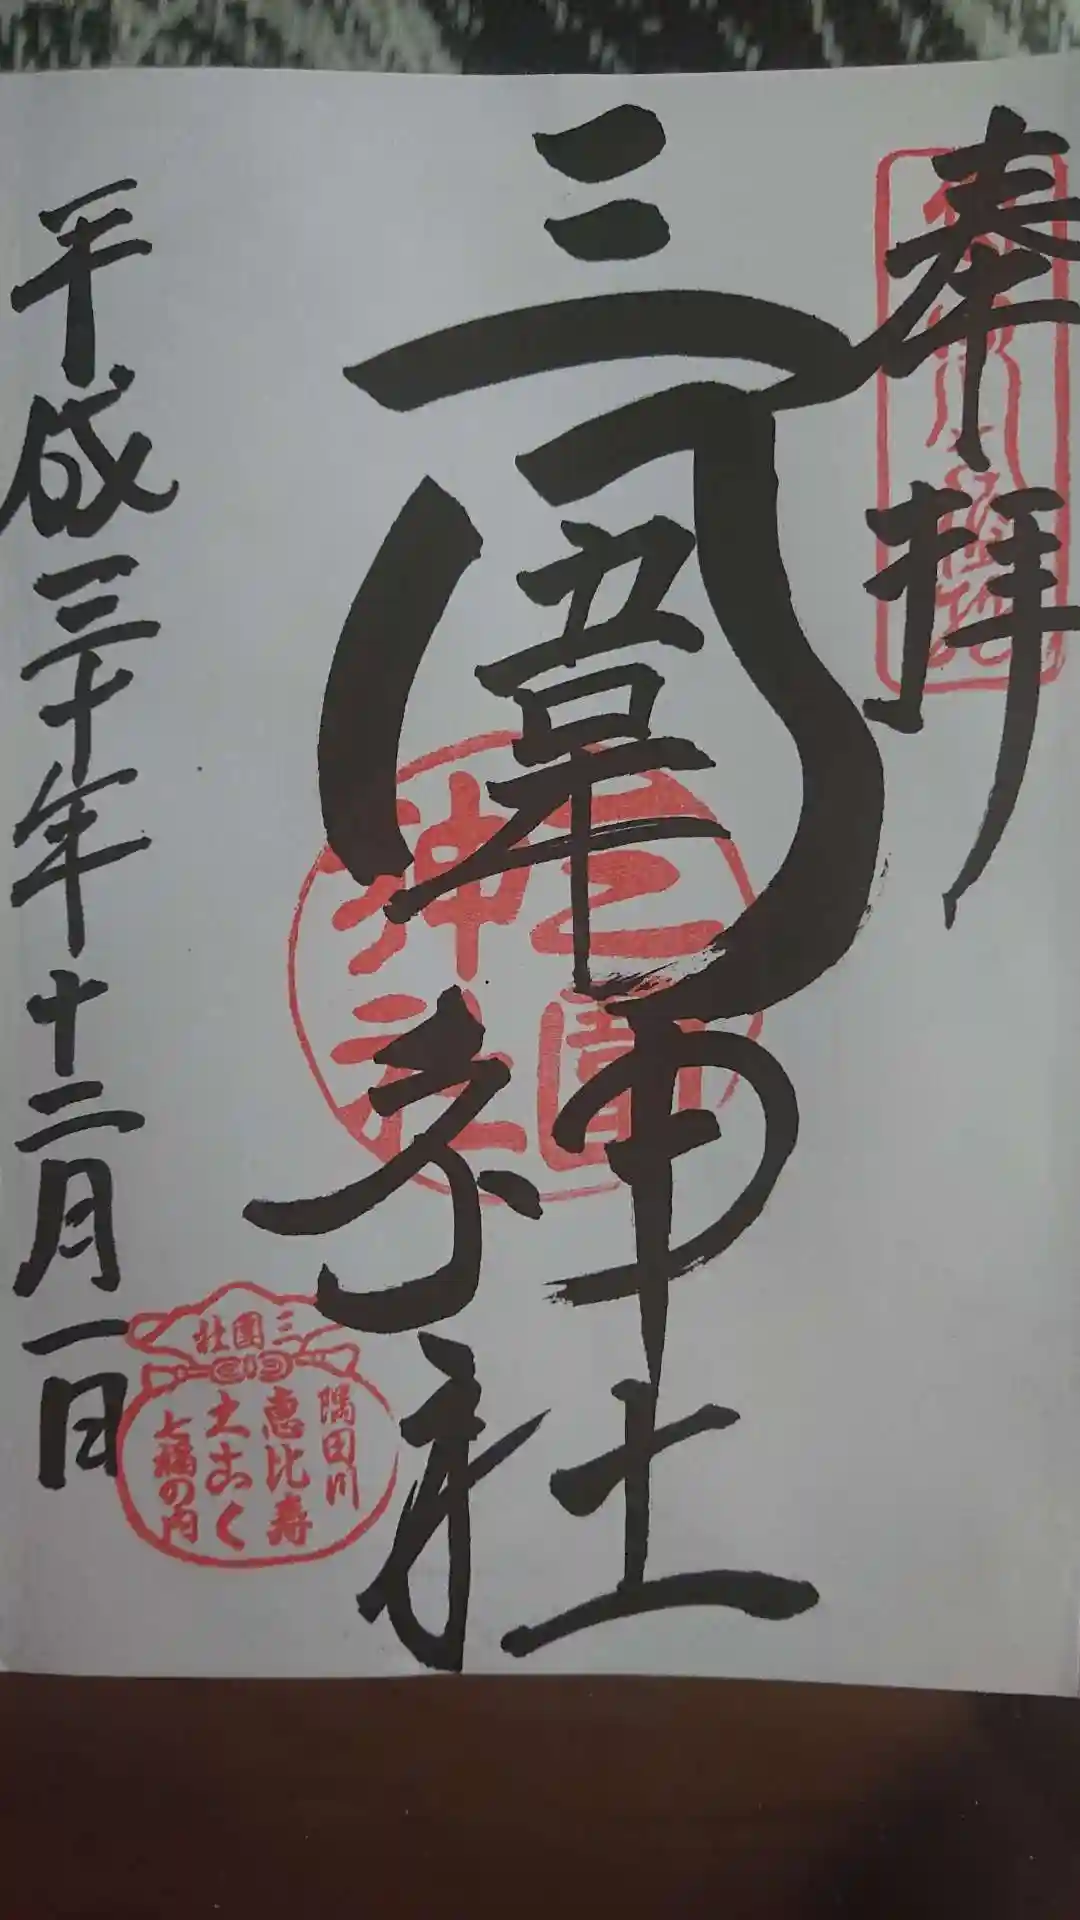 奉拝
三圍神社
平成三十年十二月一日
三囲神社
三圍社
隅田川
恵比寿
大こく
七福の内